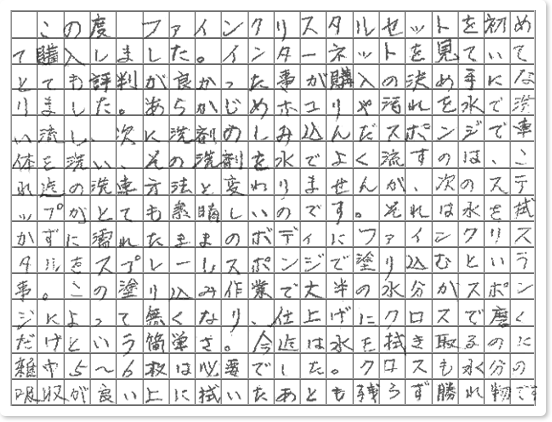 この度、ファインクリスタルセットを初め
て購入しました。インターネットを見ていて
とても評判が良かった事が購入の決め手にな
りました。あらかじめホコリや汚れを水で洗
い流し、次に洗剤のしみ込んだスポンジで車
体を洗い、その洗剤を水でよく流すのは、こ
れ迄の洗車方法と変わりませんが、次のステ
ップがとても素晴しいのです。それは水を拭
かずに濡れたままのボディにファインクリス
タルをスプレーしスポンジで塗り込むという
事。この塗り込み作業で大半の水分がスポン
ジによって無くなり、仕上げにクロスで磨く
だけという簡単さ。今迄は水を拭き取るのに
雑巾5〜6枚は必要でした。クロスも水分の
吸収が良い上に拭いたあとも残らず勝れ物です